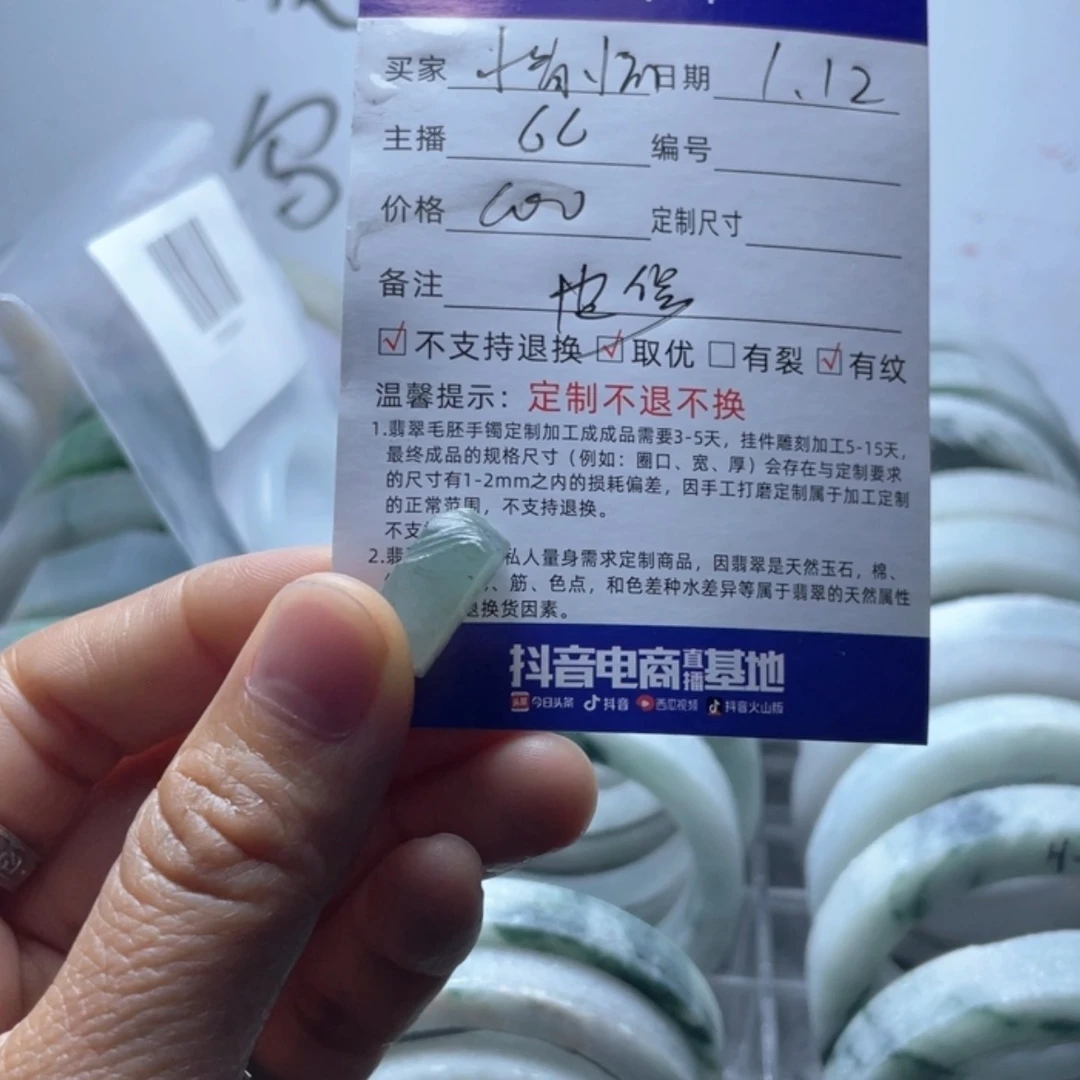 买家 日期 1.12
主播 66 编号
价格 600 定制尺寸
备注 地保
☑不支持退换 ☑取优 ☐有裂 ☑有纹
温馨提示：定制不退不换
1.翡翠毛胚手镯定制加工成成品需要3-5天，挂件雕刻加工5-15天，
最终成品的规格尺寸（例如：圈口、宽、厚）会存在与定制要求
的尺寸有1-2mm之内的损耗偏差，因手工打磨定制属于加工定制
的正常范围，不支持退换。
不支
2.翡 私人量身需求定制商品，因翡翠是天然玉石，棉、
、筋、色点，和色差种水差异等属于翡翠的天然属性
退换货因素。
抖音电商直播基地
头条 今日头条 抖音 西瓜视频 抖音火山版